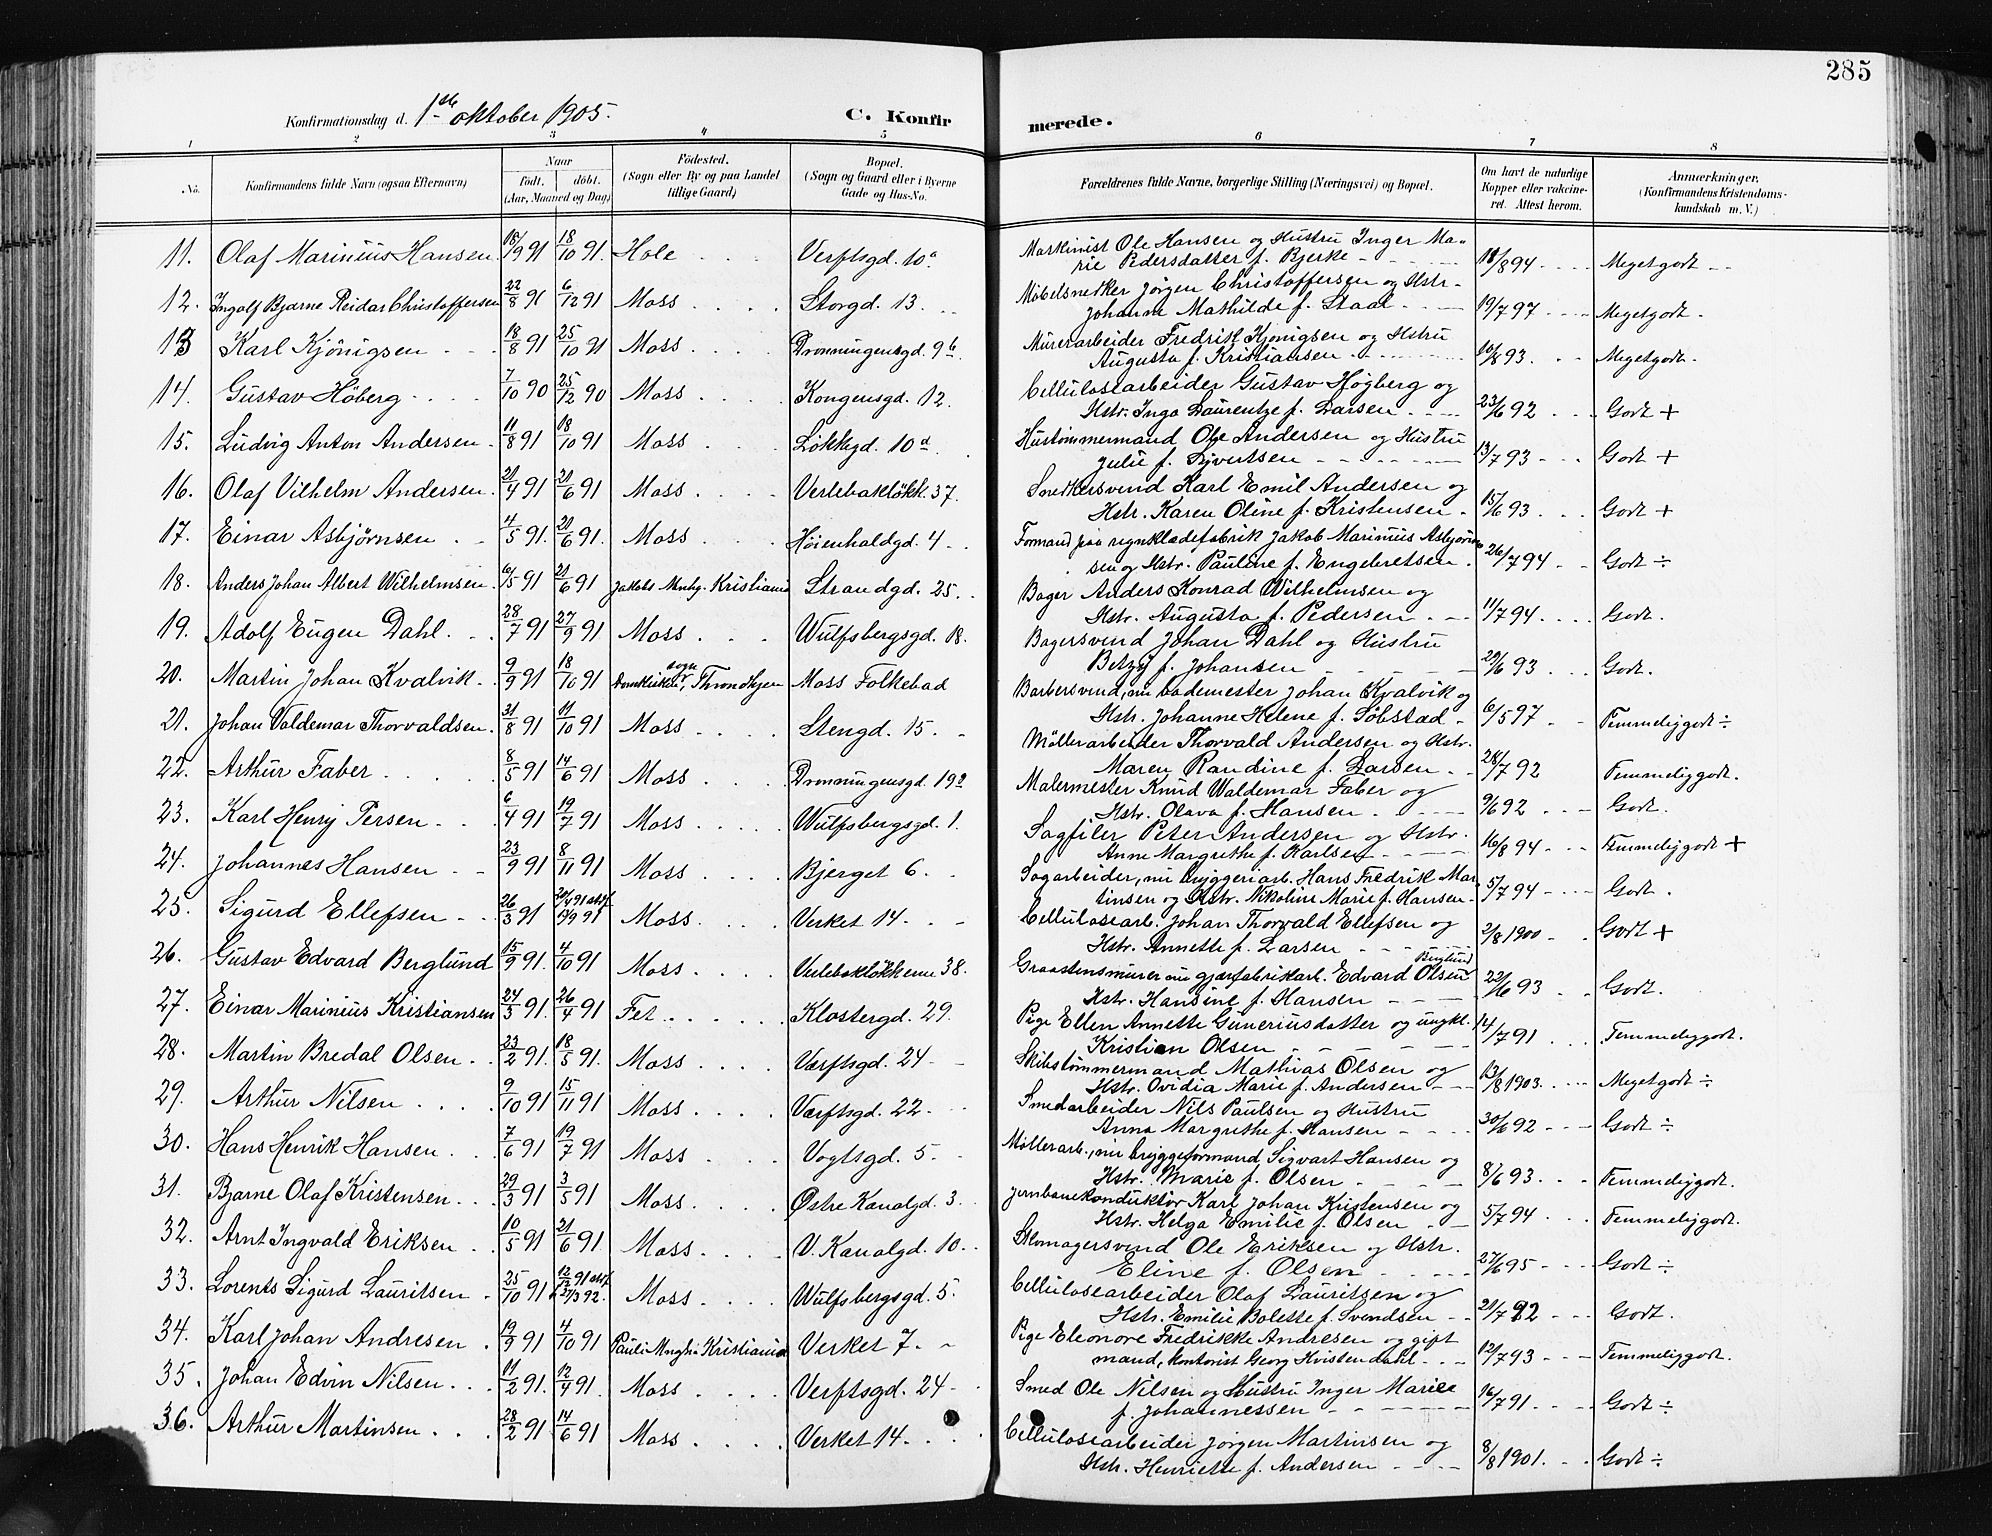 285
Konfirmationsdag d. 1ste oktober 1905. C. Konfirmerede.
1 2 3 4 5 6 7 8
No. Konfirmandens fulde Navn (ogsaa Efternavn) Naar født. døbt. (Aar, Maaned og Dag) Fødested. (Sogn eller By og paa Landet tillige Gaard) Bopæl. (Sogn og Gaard eller i Byerne Gade og Hus-No. Forældrenes fulde Navne, borgerlige Stilling (Næringsvei) og Bopæl. Om havt de naturlige Kopper eller vakcineret. Attest herom. Anmærkninger. (Konfirmandens Kristendomskundskab m. V.)
11. Olaf Marinius Hansen 18/9 91 18/10 91 Hole Verftsgd. 10a Maskinist Ole Hansen og Hustru Inger Marie Pedersdatter f. Bjerke 18/8 94 Megetgodt
12. Ingolf Bjarne Reidar Christoffersen 22/8 91 6/12 91 Moss Storgd. 13 Møbelsnedker Jørgen Christoffersen og Hstr. Johanne Mathilde f. Staal 19/7 97 Megetgodt.
13 Karl Kjönigsen 18/8 91 25/10 91 Moss Dronningensgd. 9b Murerarbeider Fredrik Kjönigsen og Hstru Augusta f. Kristiansen 10/8 93 Megetgodt.
14. Gustav Höberg 7/10 90 25/12 90 Moss Kongensgd. 12. Cellulosearbeider Gustav Høgberg og Hstr. Inga Laurentze f. Larsen 23/6 92 Godt +
15. Ludvig Anton Andersen 11/8 91 18/10 91 Moss Løkkegd. 10d Hustømmermand Ole Andersen og Hustru Julie f. Syvertsen 13/7 93 Godt +
16. Olaf Vilhelm Andersen 21/4 91 21/6 91 Moss Verlebakløkk. 37. Snedkersvend Karl Emil Andersen og Hstr. Karen Oline f. Kristensen 15/6 93 Godt +
17. Einar Asbjørnsen 4/5 91. 21/6 91 Moss Høienhaldgd. 4 Formand paa regnklædefabrik Jakob Marinius Asbjørnsen og Hstr. Pauline f. Engebretsen 26/7 94 Godt ÷
18. Anders Johan Albert Wilhelmsen 6/5 91 21/6 91 Jakobs Mnhg. Kristiania Strandgd. 25. Bager Anders Konrad Wilhelmsen og Hstr. Augusta f. Pedersen 11/7 94 Godt.
19. Adolf Eugen Dahl 28/7 91 27/9 91 Moss Wulfsbergsgd. 18. Bagersvend Johan Dahl og Hustru Betzy f. Johansen 29/6 93 Godt.
20. Martin Johan Kvalvik 9/9 91 18/10 91 Domkirkens sogn, Throndhjem Moss Folkebad Barbersvend, nu bademester Johan Kvalvik og Hstr. Johanne Helene f. Søbstad 6/5 97 Temmeliggodt ÷
21. Johan Valdemar Thorvaldsen 31/8 91 11/10 91 Moss Stengd. 15. Møllerarbeider Thorvald Andersen og Hstr. Maren Randine f. Larsen 28/7 92 Temmeliggodt.
22. Arthur Faber 8/5 91 14/6 91 Moss Dronningensgd. 19 Malermester Knud Waldemar Faber og Hstr. Olava f. Hansen 9/6 92 Godt.
23. Karl Henry Persen 6/4 91 19/7 91 Moss Wulfsbergsgd. 1. Sagfiler Peter Andersen og Hstr. Anne Margrethe f. Karlsen 16/8 94 Temmeliggodt +
24. Johannes Hansen 23/9 91 8/11 91 Moss Bjerget 6. Sagarbeider, nu bryggeriarb. Hans Fredrik Martinsen og Hstr. Nikoline Marie f. Hansen 5/7 94 Godt.
25. Sigurd Ellefsen 26/3 91 20/4 91 stf. 19/9 91 Moss Verket 14 Cellulosearb. Johan Thorvald Ellefsen og Hstr. Annette f. Larsen 2/8 1900 Godt +
26. Gustav Edvard Berglund 15/9 91. 4/10 91 Moss Verlebakløkkene 38. Graastensmurer nu gjærfabrikarb. Edvard Olsen Berglund Hstr. Hansine f. Hansen 22/6 93 Godt.
27. Einar Marinius Kristiansen 24/3 91 26/4 91 Fet Klostergd. 29. Pige Ellen Annette Gunneriusdatter og ungkl. Kristian Olsen 14/7 91 Temmeliggodt.
28. Martin Bredal Olsen 23/2 91. 18/5 91. Moss Værftsgd. 24 Skibstømmermand Mathias Olsen og Hstr. Ovidia Marie f. Andersen 13/8 1903. Megetgodt ÷
29. Arthur Nilsen 9/10 91 15/11 91 Moss Værftsgd. 22. Smedarbeider Nils Paulsen og Hustru Anna Margrethe f. Hansen 30/6 92 Godt ÷
30. Hans Henrik Hansen 7/6 91 19/7 91 Moss Vogtsgd. 5. Møllerarb., nu bryggeformand Sigvart Hansen og Hstr. Marie f. Olsen 8/6 93 Temmeliggodt.
31. Bjarne Olaf Kristensen 29/3 91 3/5 91 Moss Østre Kanalgd. 3 Jernbanekonduktør Karl Johan Kristensen og Hstr. Helga Emilie f. Olsen 5/7 94 Temmeliggodt.
32. Arnt Ingvald Eriksen 10/5 91 21/6 91 Moss V. Kanalgd. 10. Skomagersvend Ole Eriksen og Hstr. Eline f. Olsen 27/6 95 Godt ÷
33. Lorents Sigurd Lauritsen 25/10 91 12/12 91 stf. 27/3 92. Moss Wulfsbergsgd. 5. Cellulosearbeider Olaf Lauritsen og Hstr. Emilie Bolette f. Svendsen 21/7 92 Godt.
34. Karl Johan Andresen 19/9 91 4/10 91 Pauli Mnghi. Kristiania Verket 7 Pige Eleonore Fredrikke Andresen og gift mand, kontorist Georg Hvistendahl 12/7 93 Temmeliggodt.
35. Johan Edvin Nilsen 11/2 91. 12/4 91. Moss Verftsgd. 24 Smed Ole Nilsen og Hustru Inger Marie f. Johannessen 16/7 91 Godt ÷
36. Arthur Martinsen 28/2 91 14/6 91 Moss Verket 14. Cellulosearbeider Jørgen Martinsen og Hstr. Henriette f. Andersen 8/8 1901. Godt ÷